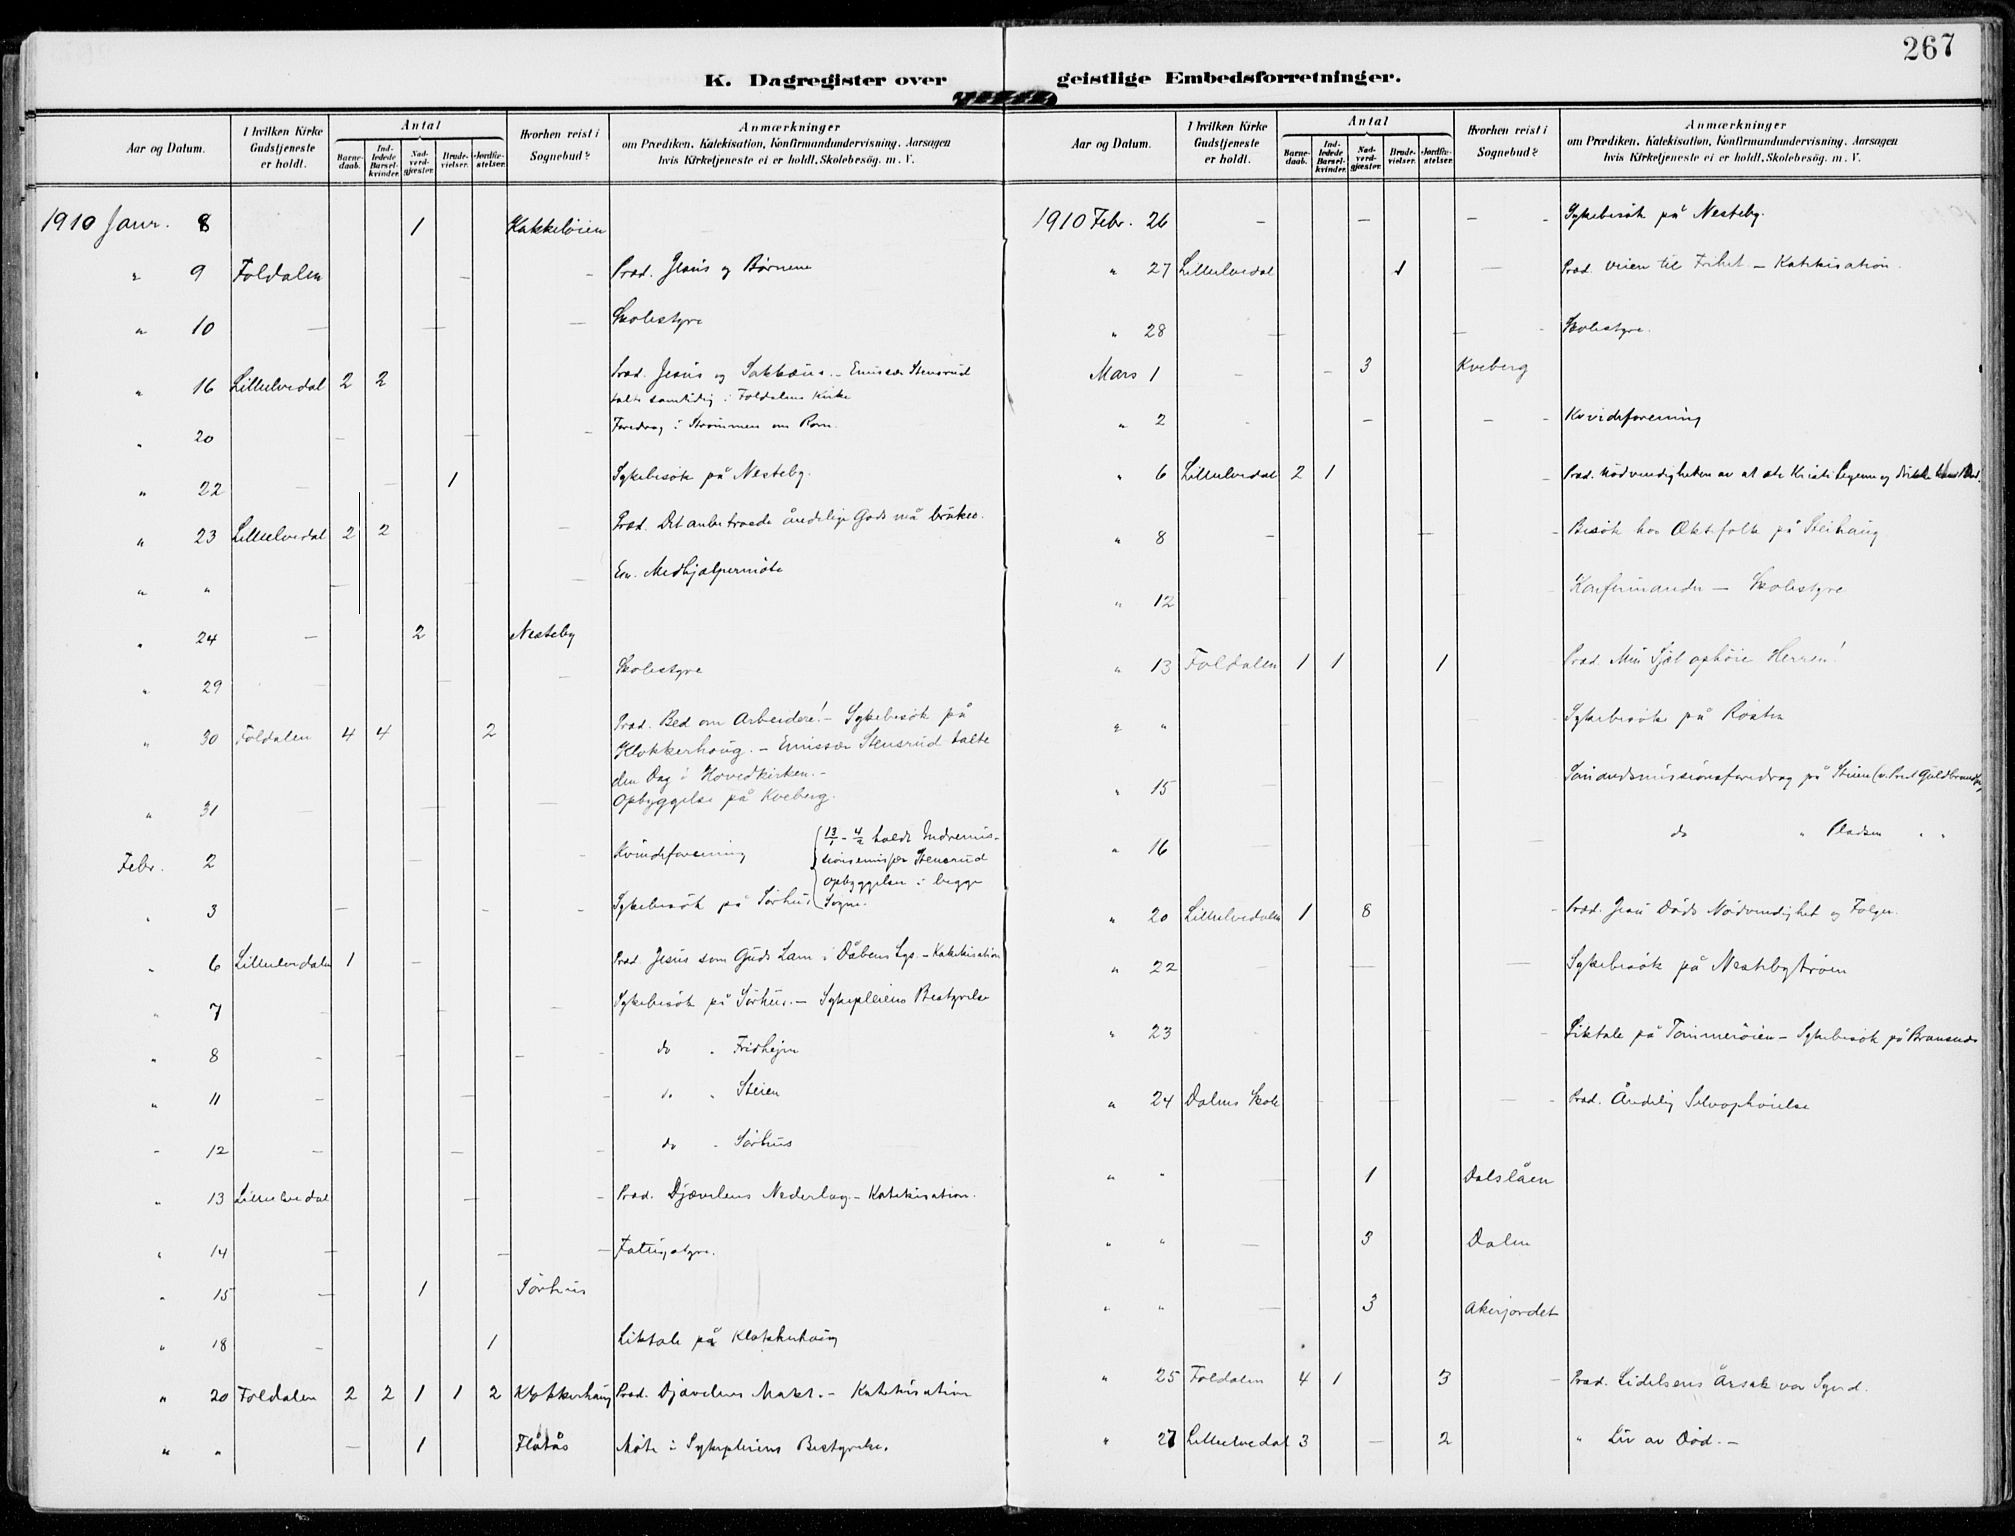 267
K. Dagregister over geistlige Embedsforretninger.
Aar og Datum. | I hvilken Kirke Gudstjeneste er holdt. | Antal | Barnedaab. | Indledede Barselkvinder. | Nadverdgjæster. | Brudevielser. | Jordfæstelser. | Hvorhen reist i Sognebud? | Anmærkninger om Prædiken, Katekisation, Konfirmandundervisning, Aarsagen hvis Kirketjeneste ei er holdt, Skolebesøg, m. V.
1910 Janr. 8 1 Kakkeløien
" 9 Foldalen – – Præd. Jesus og Børnene
" 10 – – – Skolestyre
" 16 Lillelvedal 2 2 Præd. Jesus og Sakkæus. – Emissær Stensrud
talte samtidig i Foldalens Kirke
" 20 – – – Foredrag i Strømmen om Rom.
" 22 – – 1 Sykebesøk på Nesteby.
" 23 Lillelvedal 2 2 – Præd. Det anbetroede åndelige Gods må brukes.
" " – – – Em. Medhjælpermøte
" 24 – 2 Nesteby
" 29 – – – Skolestyre
" 30 Foldalen 4 4 2 Præd. Bed om Arbeidere! – Sykebesøk på
Klokkerhaug. – Emissær Stensrud talte
den Dag i Hovedkirken. –
" 31 – – – Opbyggelse på Kveberg.
Febr. 2 – – – Kvindeforening
13/1 – 4/2 holdt Indremis-
sionsemissær Stensrud
opbyggelser i begge
Sogne.
" 3 – – – Sykebesøk på Sørhus
" 6 Lillelvedalen 1 – Præd. Jesus som Guds Lam i Dåbens Lys. – Katekisation
" 7 – – Sykebesøk på Sørhus. – Sykepleiens Bestyrelse
" 8 – – – – do " Fridhejm
" 11 – – – do " Steien
" 12 – – – do " Sørhus
" 13 Lillelvedal – – Præd. Djævelens Nederlag. – Katekisation.
" 14 – – – Fattigstyre.
" 15 – 1 Sørhus
" 18 – 1 Liktale på Klokkerhaug
" 20 Foldalen 2 2 1 1 2 Klokkerhaug Præd. Djævelens Makt. – Katekisation
" " – 1 Flåtås Møte i Sykepleiens Bestyrelse.
Aar og Datum. | I hvilken Kirke Gudstjeneste er holdt. | Antal | Barnedaab. | Indledede Barselkvinder. | Nadverdgjæster. | Brudevielser. | Jordfæstelser. | Hvorhen reist i Sognebud? | Anmærkninger om Prædiken, Katekisation, Konfirmandundervisning, Aarsagen hvis Kirketjeneste ei er holdt, Skolebesøg, m. V.
1910 Febr. 26 – – – – Sykebesøk på Nesteby.
" 27 Lillelvedal 1 – Præd. Veien til Frihet. – Katekisation.
" 28 – – – Skolestyre.
Mars 1 – – 3 Kveberg
" 2 – – – – Kvindeforening
" 6 Lillelvedal 2 1 – Præd. Nødvendigheten av at æte Kristi Legeme og drikke hans Blod.
" 8 – – – Besøk hos Ektefolk på Steihaug
" 12 – – – Konfirmander – Skolestyre
" 13 Foldalen 1 1 1 Præd. Min Sjæl ophøie Herren!
" " – – Sykebesøk på Rosten
" 15 – – Sømandsmissionsforedrag på Steien (v. Prest Guldbrandsen)
" 16 – – do " Pladsen " "
" 20 Lillelvedalen 1 8 – Præd. Jesu Døds Nødvendighet og Følger.
" 22 – – – Sykebesøk på Nestebytrøen
" 23 – – – Liktale på Tømmerøien – Sykebesøk på
" 24 Dalens Skole – – – – Præd. Åndelig Selvophøielse
" " 1 Dalslåen
" " – 3 Dalen
" " – 3 Akerjordet
" 25 Foldalen 4 1 3 – Præd. Lidelsens Årsak vor Synd.
" 27 Lillelvedal 3 – 2 " Liv av Død. –